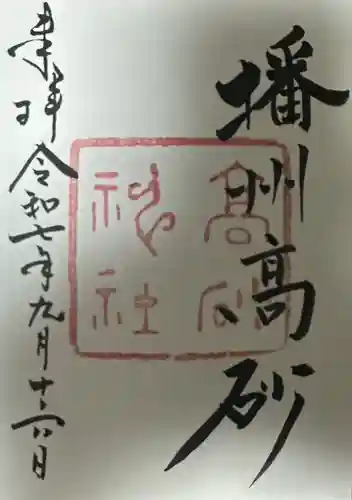 播州高砂
高砂
神社
奉拝
令和七年九月十三日